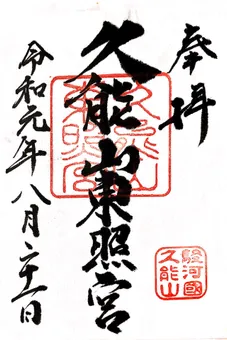 奉拝
久能山東照宮
令和元年八月二十一日
久能山東照宮
駿河國
久能山